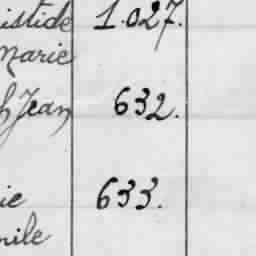 istide 1.027.
Marie
h Jean 632.
ie 633.
mile